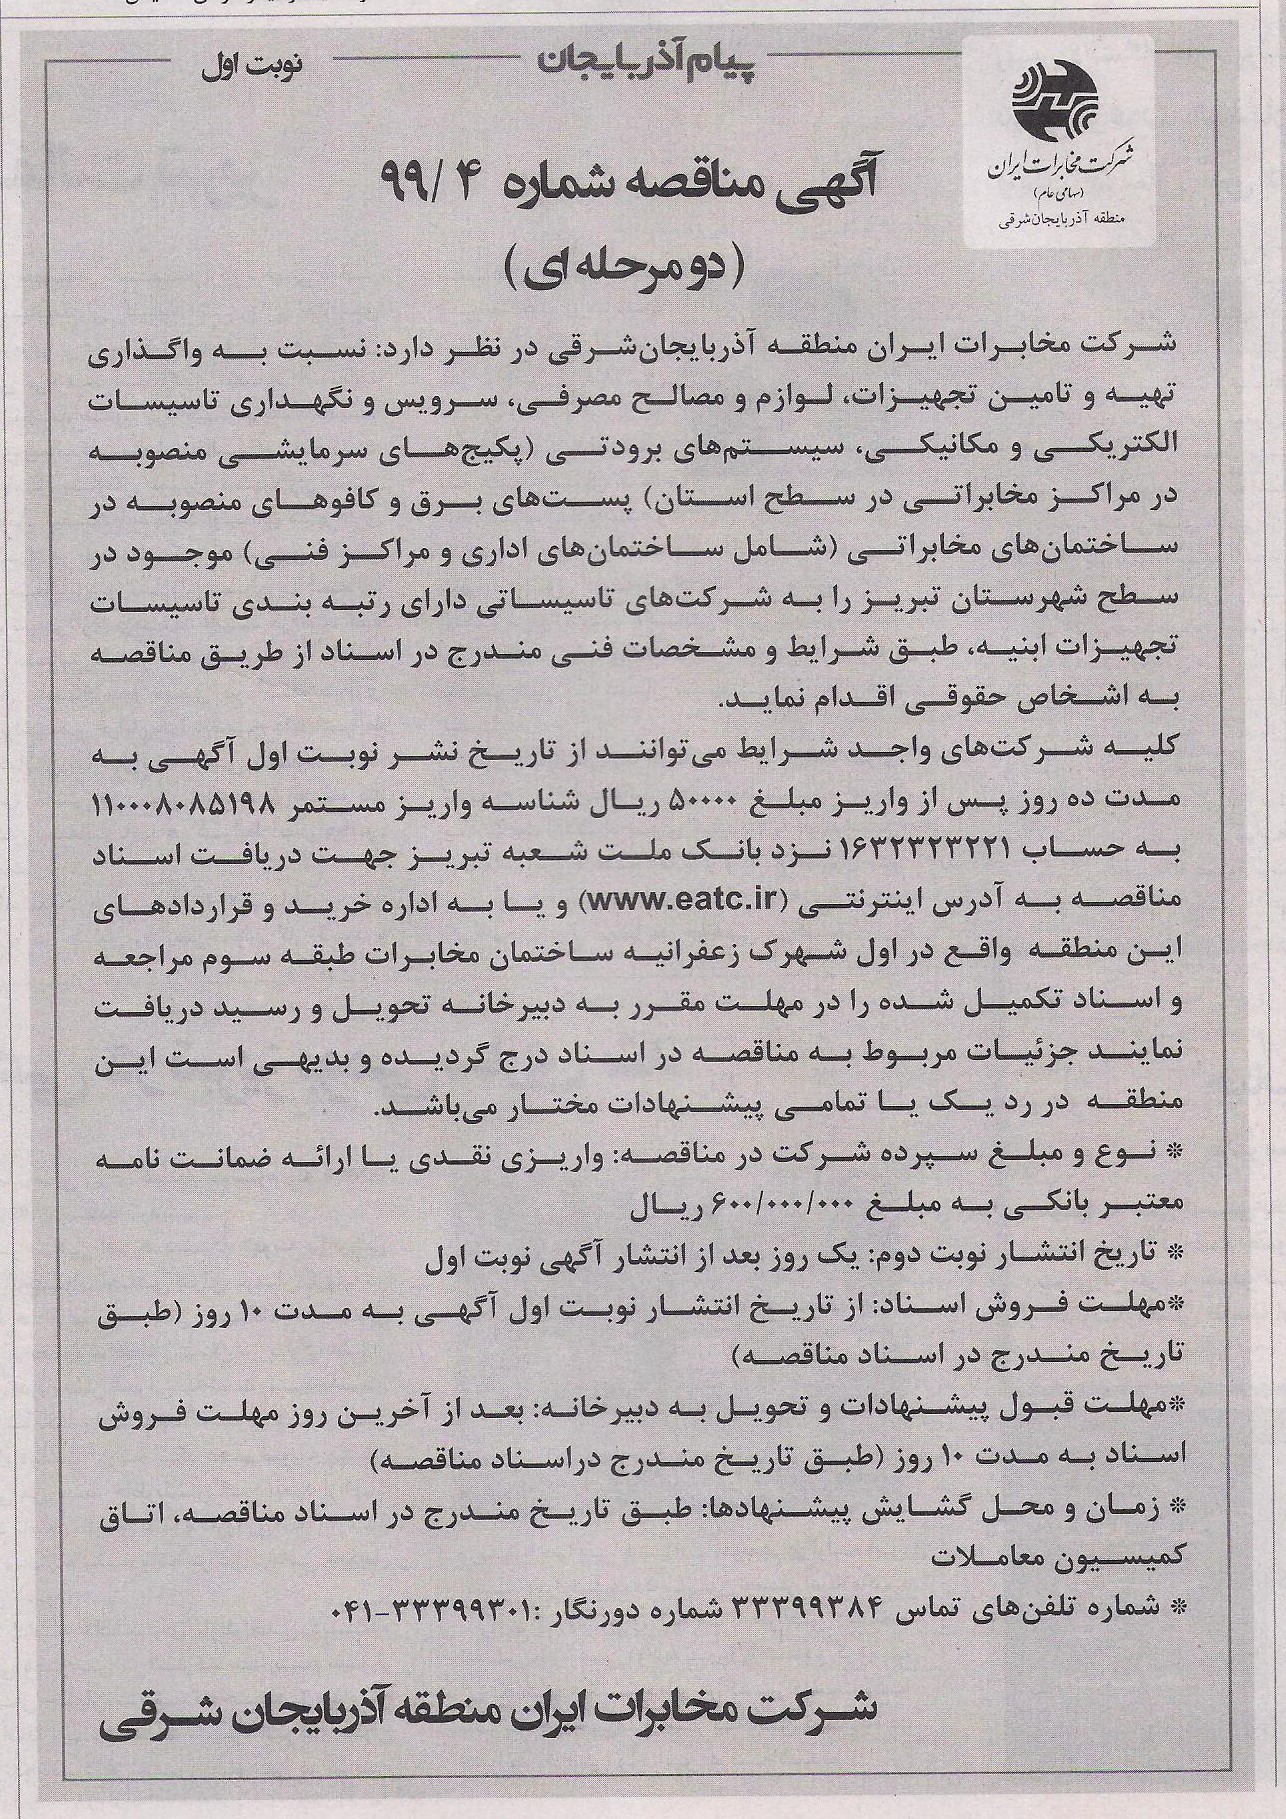 پیام آذربایجان
نوبت اول
شرکت مخابرات ایران
(سهامی عام)
منطقه آذربایجان‌شرقی
آگهی مناقصه شماره ۴ /۹۹
(دو مرحله ای)
شرکت مخابرات ایران منطقه آذربایجان‌شرقی در نظر دارد: نسبت به واگذاری
تهیه و تامین تجهیزات، لوازم و مصالح مصرفی، سرویس و نگهداری تاسیسات
الکتریکی و مکانیکی، سیستم‌های برودتی (پکیج‌های سرمایشی منصوبه
در مراکز مخابراتی در سطح استان) پست‌های برق و کافوهای منصوبه در
ساختمان‌های مخابراتی (شامل ساختمان‌های اداری و مراکز فنی) موجود در
سطح شهرستان تبریز را به شرکت‌های تاسیساتی دارای رتبه بندی تاسیسات
تجهیزات ابنیه، طبق شرایط و مشخصات فنی مندرج در اسناد از طریق مناقصه
به اشخاص حقوقی اقدام نماید.
کلیه شرکت‌های واجد شرایط می‌توانند از تاریخ نشر نوبت اول آگهی به
مدت ده روز پس از واریز مبلغ ۵۰۰۰۰ ریال شناسه واریز مستمر ۱۱۰۰۰۸۰۸۵۱۹۸
به حساب ۱۶۳۲۳۲۳۲۲۱ نزد بانک ملت شعبه تبریز جهت دریافت اسناد
مناقصه به آدرس اینترنتی (www.eatc.ir) و یا به اداره خرید و قراردادهای
این منطقه واقع در اول شهرک زعفرانیه ساختمان مخابرات طبقه سوم مراجعه
و اسناد تکمیل شده را در مهلت مقرر به دبیرخانه تحویل و رسید دریافت
نمایند جزئیات مربوط به مناقصه در اسناد درج گردیده و بدیهی است این
منطقه در رد یک یا تمامی پیشنهادات مختار می‌باشد.
* نوع و مبلغ سپرده شرکت در مناقصه: واریزی نقدی یا ارائه ضمانت نامه
معتبر بانکی به مبلغ ۶۰۰/۰۰۰/۰۰۰ ریال
* تاریخ انتشار نوبت دوم: یک روز بعد از انتشار آگهی نوبت اول
*مهلت فروش اسناد: از تاریخ انتشار نوبت اول آگهی به مدت ۱۰ روز (طبق
تاریخ مندرج در اسناد مناقصه)
*مهلت قبول پیشنهادات و تحویل به دبیرخانه: بعد از آخرین روز مهلت فروش
اسناد به مدت ۱۰ روز (طبق تاریخ مندرج دراسناد مناقصه)
* زمان و محل گشایش پیشنهادها: طبق تاریخ مندرج در اسناد مناقصه، اتاق
کمیسیون معاملات
* شماره تلفن‌های تماس ۳۳۳۹۹۳۸۴ شماره دورنگار :۳۳۳۹۹۳۰۱-۰۴۱
شرکت مخابرات ایران منطقه آذربایجان شرقی